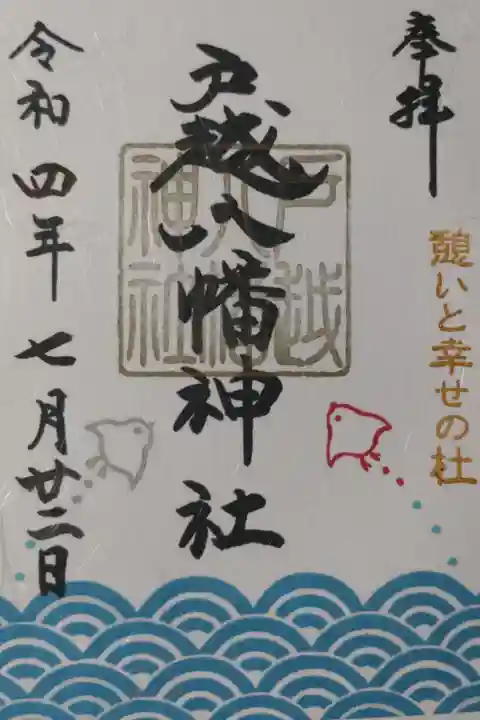 奉拝
憩いと幸せの杜
戸越八幡神社
戸越
八幡
神社
令和四年七月廿二日